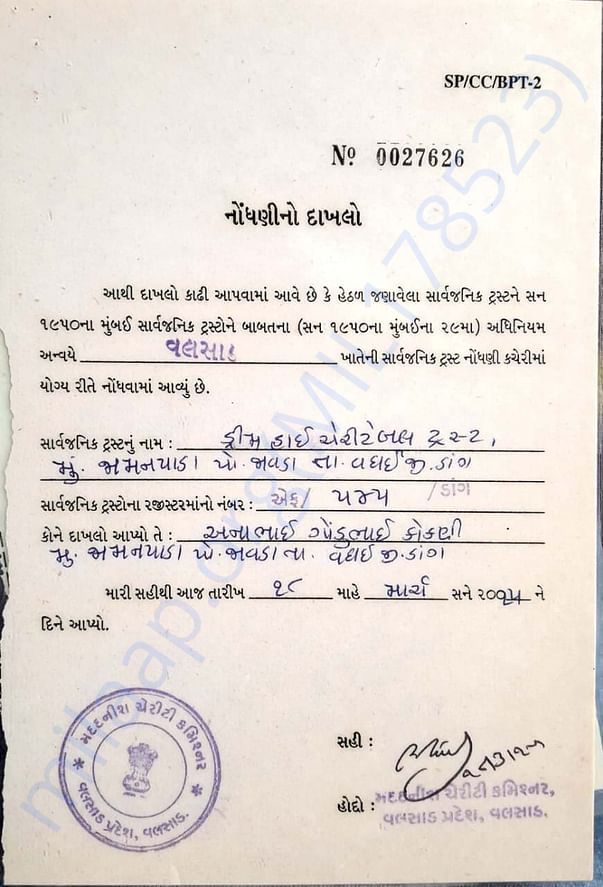 SP/CC/BPT-2
Nº 0027626
નોંધણીનો દાખલો
આથી દાખલો કાઢી આપવામાં આવે છે કે હેઠળ જણાવેલા સાર્વજનિક ટ્રસ્ટને સન
૧૯૫૦ના મુંબઈ સાર્વજનિક ટ્રસ્ટોને બાબતના (સન ૧૯૫૦ના મુંબઈના ૨૯મા) અધિનિયમ
અન્વયે વલસાડ ખાતેની સાર્વજનિક ટ્રસ્ટ નોંધણી કચેરીમાં
યોગ્ય રીતે નોંધવામાં આવ્યું છે.
સાર્વજનિક ટ્રસ્ટનું નામ : ડ્રીમ હાઈ ચેરીટેબલ ટ્રસ્ટ,
મું. જામનપાડા પો. જાવડા તા. વઘઈ જી. ડાંગ
સાર્વજનિક ટ્રસ્ટોના રજીસ્ટરમાંનો નંબર : એફ/ ૫૪૫ /ડાંગ
કોને દાખલો આપ્યો તે : અનાભાઈ ગોંડુભાઈ કોકણી
મુ. જામનપાડા પો. જાવડા તા. વઘઈ જી. ડાંગ
મારી સહીથી આજ તારીખ ૧૮ માહે માર્ચ સને ૨૦૧૫ ને
દિને આપ્યો.
સહી :
હોદ્દો : મદદનીશ ચેરીટી કમિશ્નર,
વલસાડ પ્રદેશ, વલસાડ.
મદદનીશ ચેરીટી કમિશ્નર
વલસાડ પ્રદેશ, વલસાડ.
milaap.org(MIL1178523)